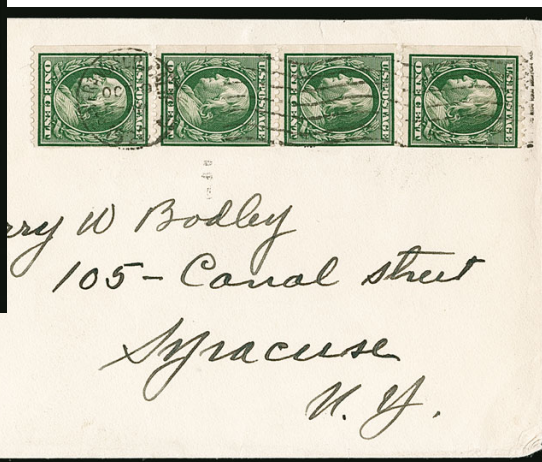 U.S. POSTAGE ONE CENT
U.S. POSTAGE ONE CENT
U.S. POSTAGE ONE CENT
U.S. POSTAGE ONE CENT
OC
rry W Bodley
105 - Canal street
Syracuse
N. Y.